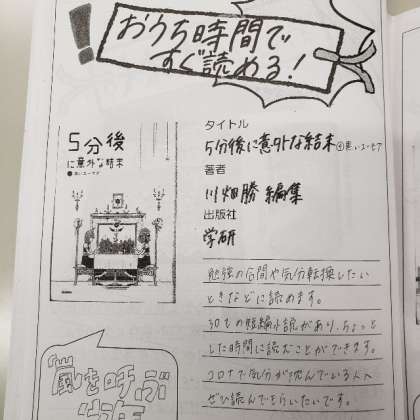 おうち時間で
すぐ読める!
タイトル
5分後に意外な結末④黒いユーモア
著者
川畑勝 編集
出版社
学研
5分後
に意外な結末
勉強の合間や気分転換したい
ときなどに読めます。
30もの短編小説があり、ちょっと
した時間に読むことができます。
コロナで気分が沈んでいる人へ
ぜひ読んでもらいたいです。
嵐を呼ぶ